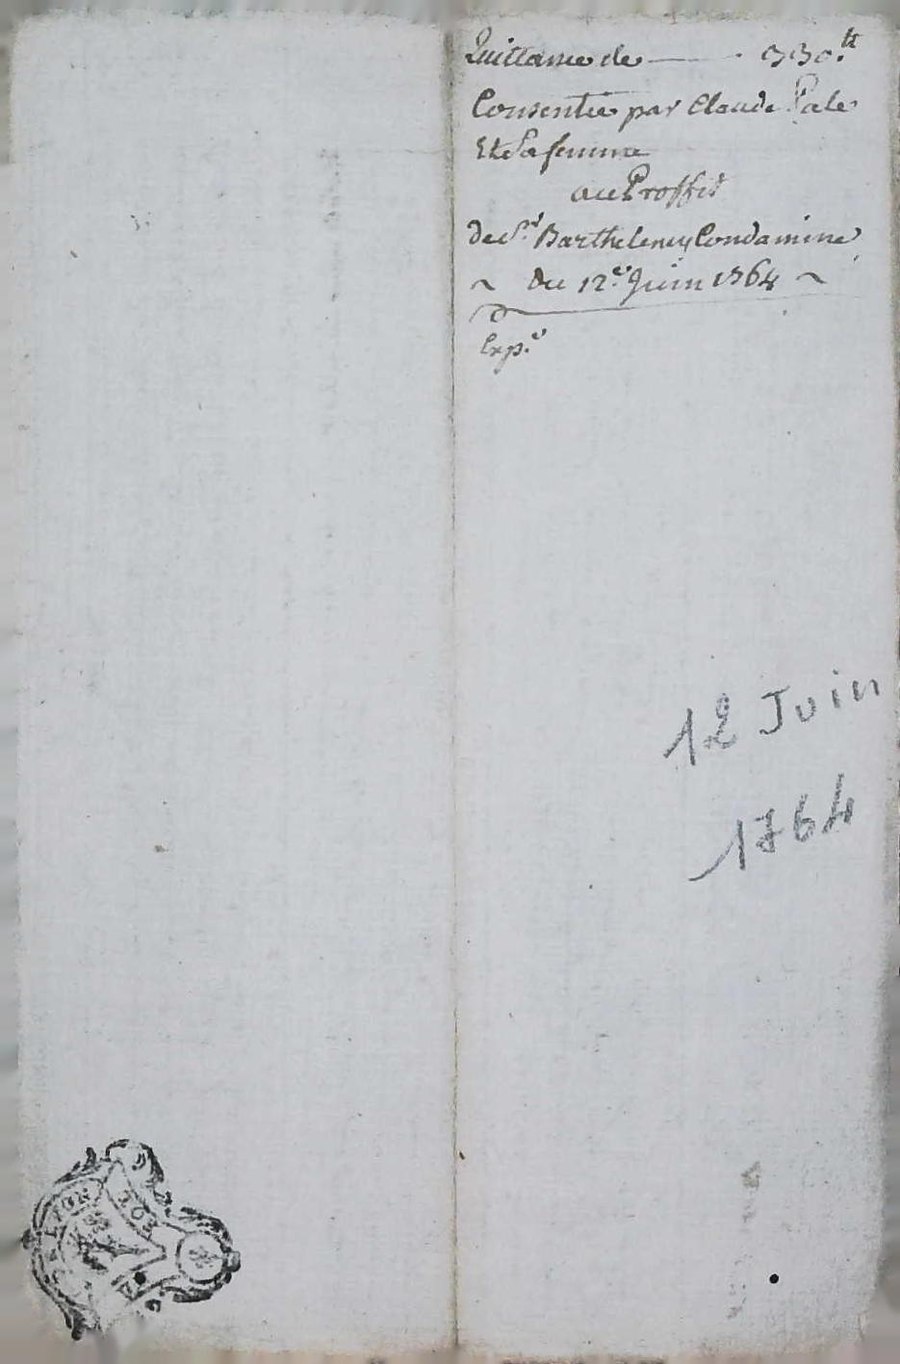 Quittance de ——— 330.tt
Consentie par Claude Pale
Et Sa femme
au Proffit
de Sr. Barthelemy Condamine
~ Du 12e. Juin 1764 ~
Exp.e
12 Juin
1764
LYON